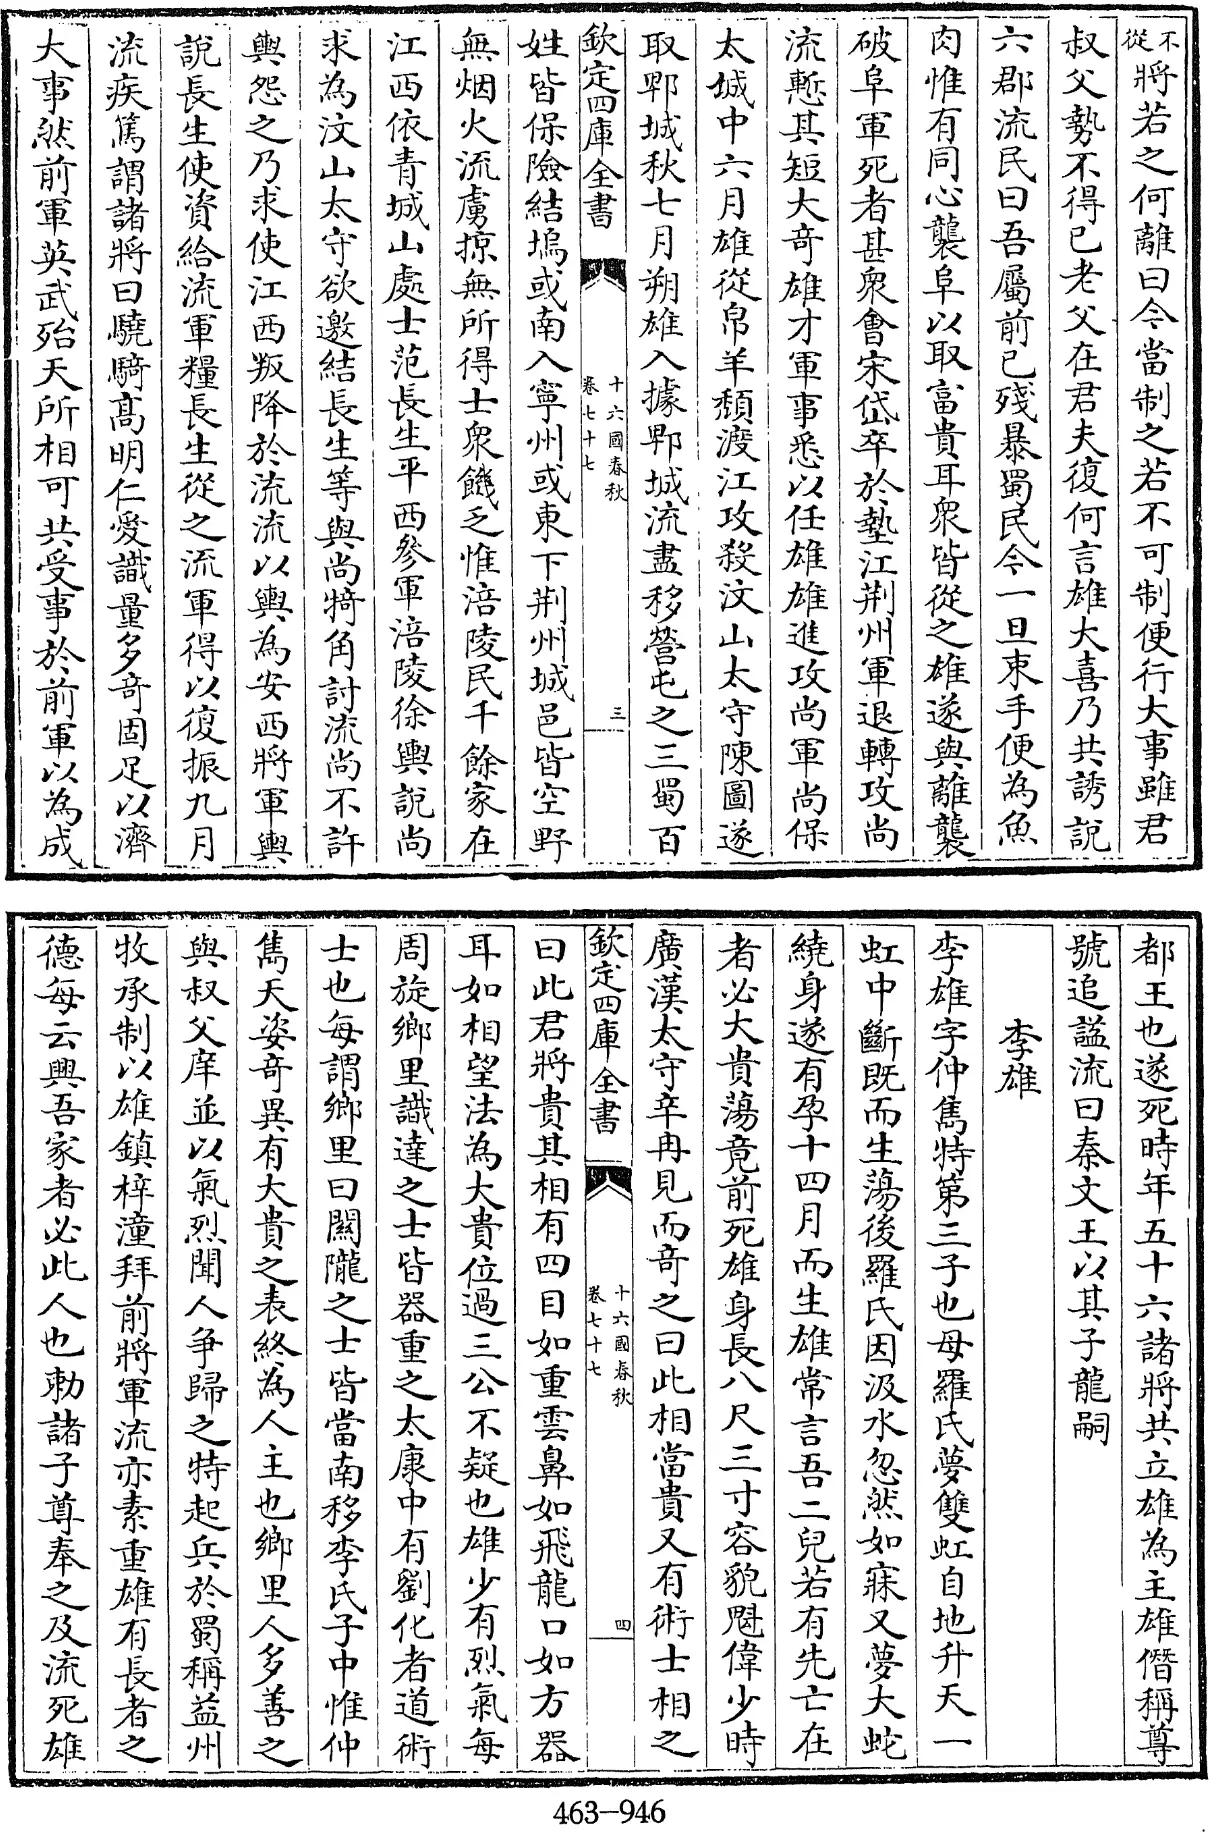 不從將若之何離曰今當制之若不可制便行大事雖君
叔父勢不得已老父在君夫復何言雄大喜乃共誘說
六郡流民曰吾屬前已殘暴蜀民今一旦束手便為魚
肉惟有同心襲阜以取富貴耳衆皆從之雄遂與離襲
破阜軍死者甚衆會宋岱卒於墊江荆州軍退轉攻尚
流慙其短大竒雄才軍事悉以任雄雄進攻尚軍尚保
太城中六月雄從帛羊頽渡江攻殺汶山太守陳圖遂
取郫城秋七月朔雄入據郫城流盡移營屯之三蜀百
欽定四庫全書
十六國春秋
卷七十七
三
姓皆保險結塢或南入寧州或東下荆州城邑皆空野
無烟火流虜掠無所得士衆饑乏惟涪陵民千餘家在
江西依青城山處士范長生平西參軍涪陵徐輿說尚
求為汶山太守欲邀結長生等與尚犄角討流尚不許
輿怨之乃求使江西叛降於流流以輿為安西將軍輿
說長生使資給流軍糧長生從之流軍得以復振九月
流疾篤謂諸將曰驍騎髙明仁愛識量多竒固足以濟
大事然前軍英武殆天所相可共受事於前軍以為成
都王也遂死時年五十六諸將共立雄為主雄僭稱尊
號追諡流曰秦文王以其子龍嗣
李雄
李雄字仲雋特第三子也母羅氏夢雙虹自地升天一
虹中斷既而生蕩後羅氏因汲水忽然如寐又夢大蛇
繞身遂有孕十四月而生雄常言吾二兒若有先亡在
者必大貴蕩竟前死雄身長八尺三寸容貌魁偉少時
廣漢太守辛冉見而竒之曰此相當貴又有術士相之
欽定四庫全書
十六國春秋
卷七十七
四
曰此君將貴其相有四目如重雲鼻如飛龍口如方器
耳如相望法為大貴位過三公不疑也雄少有烈氣每
周旋鄉里識達之士皆器重之太康中有劉化者道術
士也每謂鄉里曰關隴之士皆當南移李氏子中惟仲
雋天姿竒異有大貴之表終為人主也鄉里人多善之
與叔父庠並以氣烈聞人争歸之特起兵於蜀稱益州
牧承制以雄鎮梓潼拜前將軍流亦素重雄有長者之
德每云興吾家者必此人也勅諸子尊奉之及流死雄
463-946